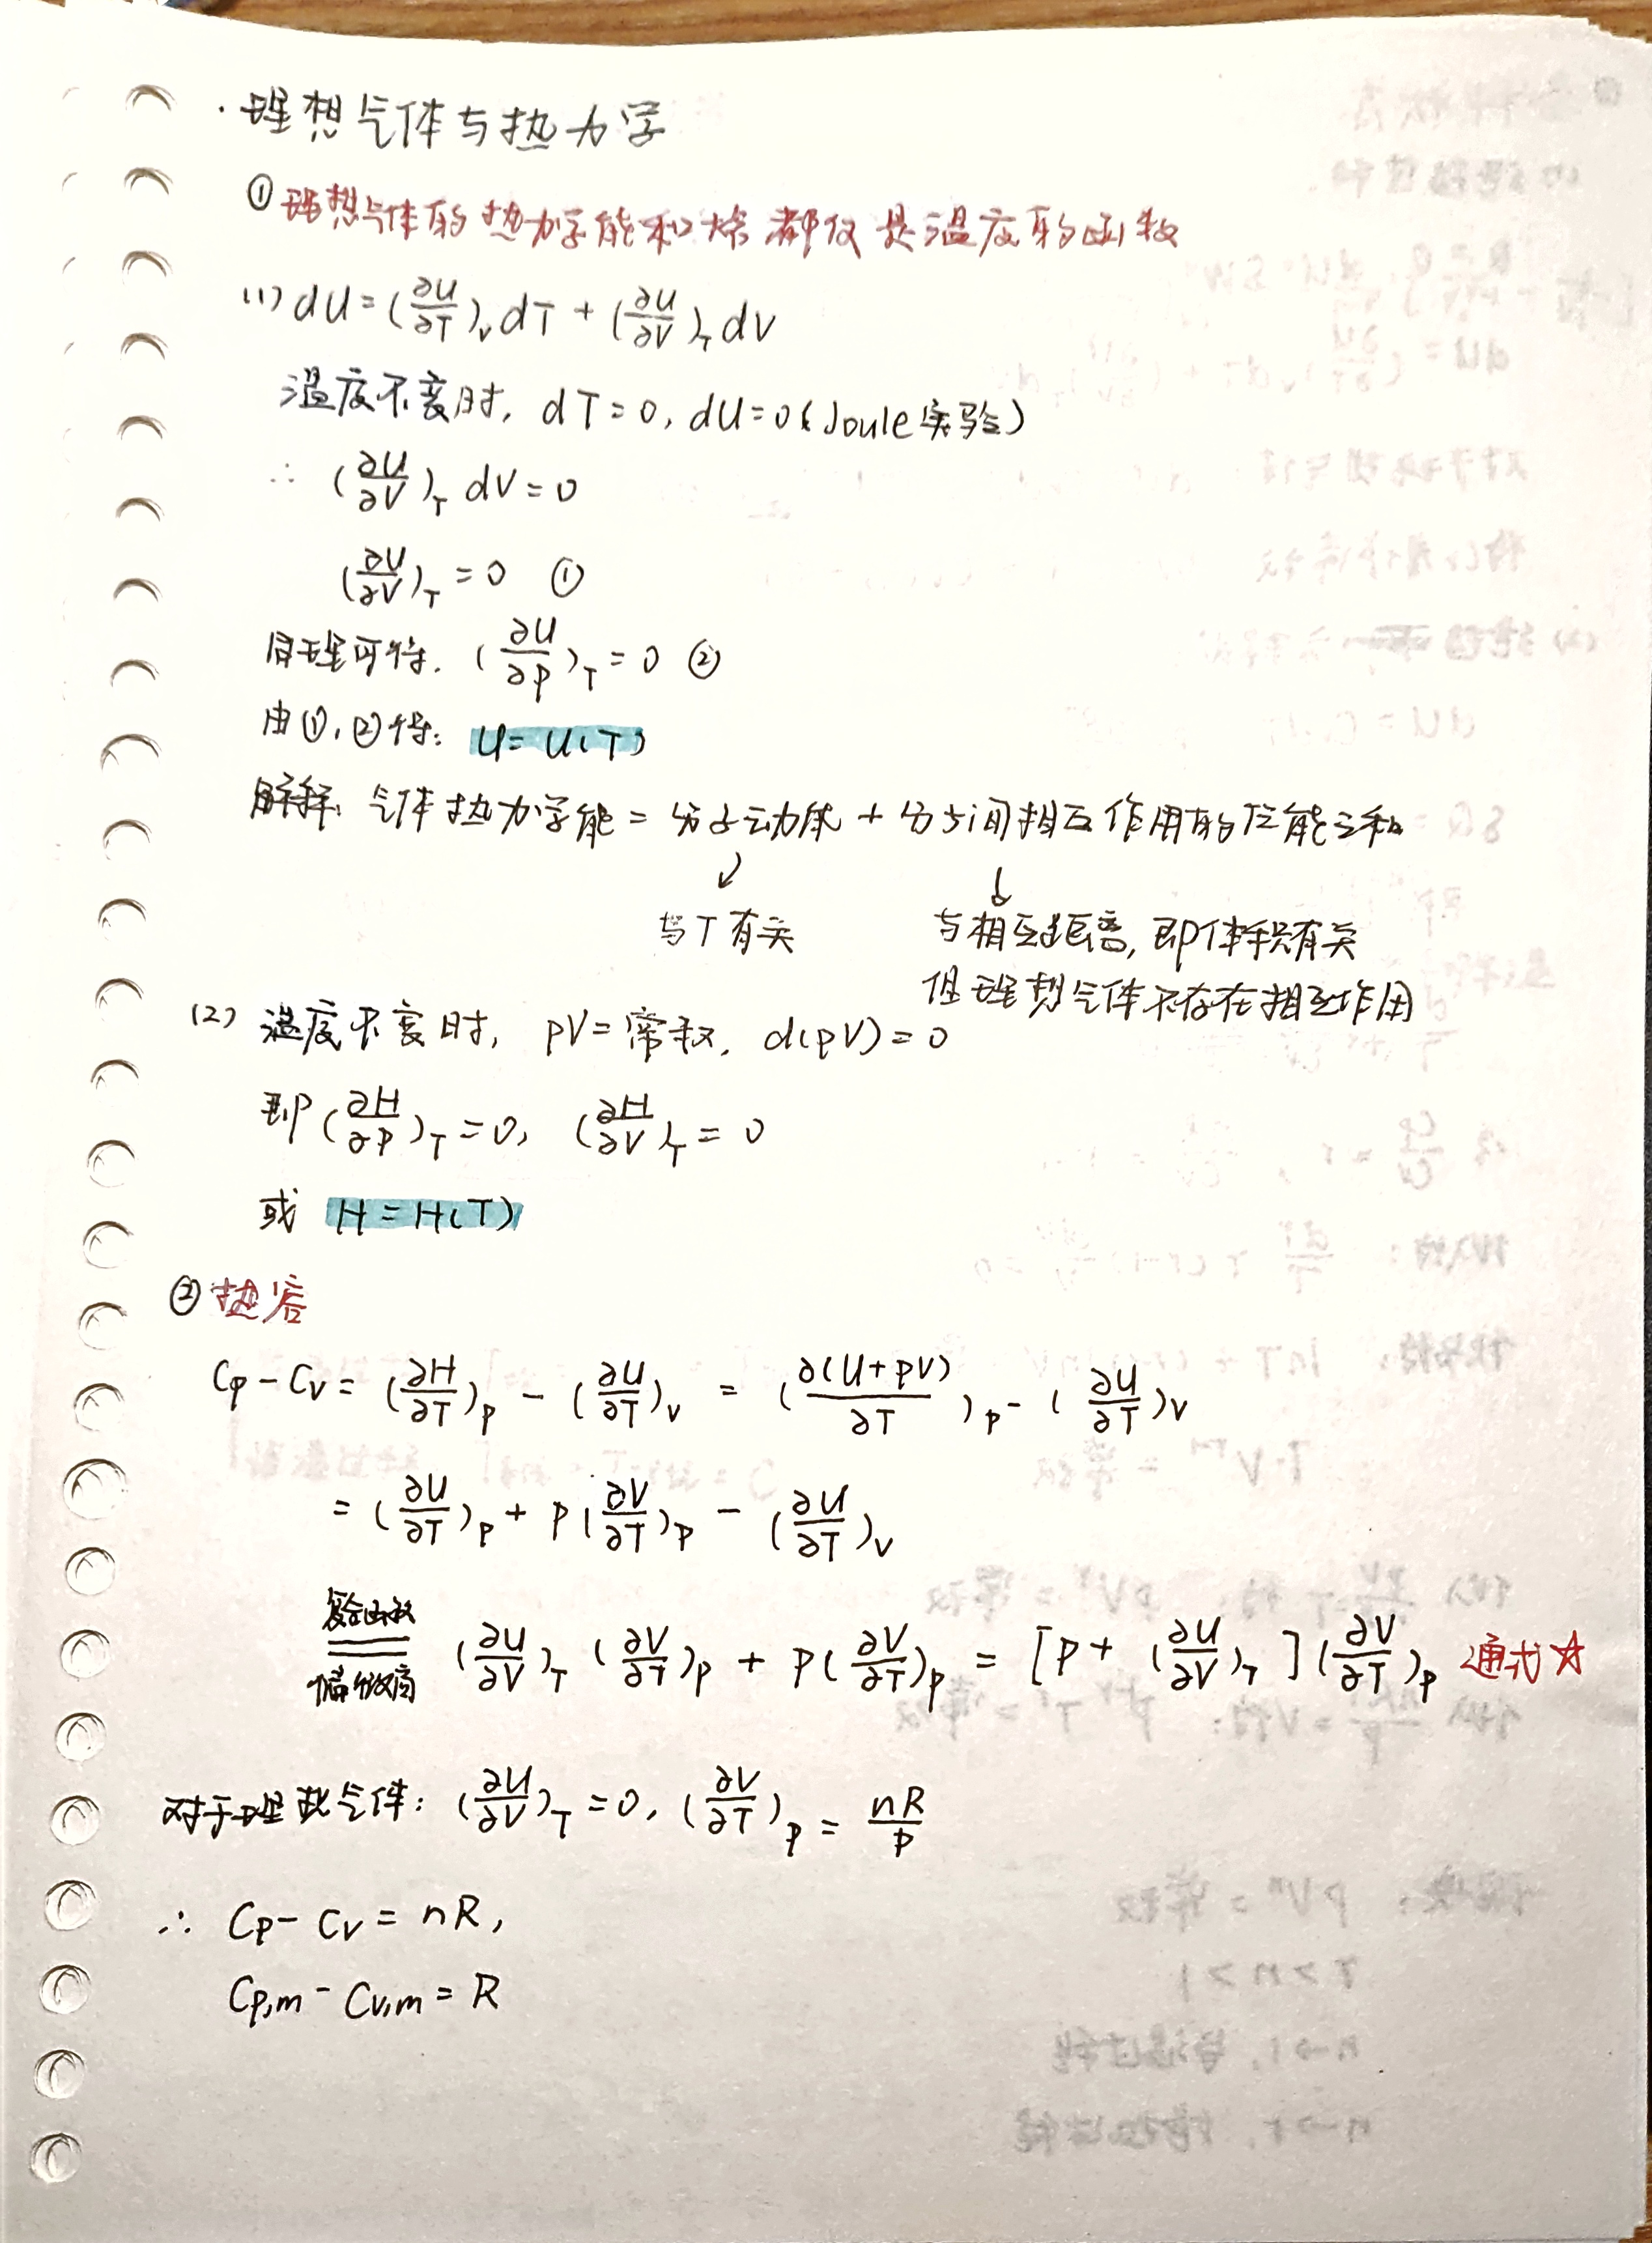 ·理想气体与热力学
①理想气体的热力学能和焓都仅是温度的函数
(1) dU = (∂U/∂T)_V dT + (∂U/∂V)_T dV
温度不变时, dT = 0, dU = 0 (Joule实验)
∴ (∂U/∂V)_T dV = 0
(∂U/∂V)_T = 0 ①
同理可得. (∂U/∂p)_T = 0 ②
由①, ②得: U = U(T)
解释: 气体热力学能 = 分子动能 + 分子间相互作用的位能之和
↓ ↓
与T有关 与相互距离, 即体积有关
但理想气体不存在相互作用
(2) 温度不变时, pV = 常数, d(pV) = 0
即 (∂H/∂p)_T = 0, (∂H/∂V)_T = 0
或 H = H(T)
② 热容
Cp - Cv = (∂H/∂T)_p - (∂U/∂T)_V = (∂(U+pV)/∂T)_p - (∂U/∂T)_V
= (∂U/∂T)_p + p(∂V/∂T)_p - (∂U/∂T)_V
复合函数
偏微商
= (∂U/∂V)_T (∂V/∂T)_p + p(∂V/∂T)_p = [p + (∂U/∂V)_T](∂V/∂T)_p 通式☆
对于理想气体: (∂U/∂V)_T = 0, (∂V/∂T)_p = nR/p
∴ Cp - Cv = nR,
Cp,m - Cv,m = R